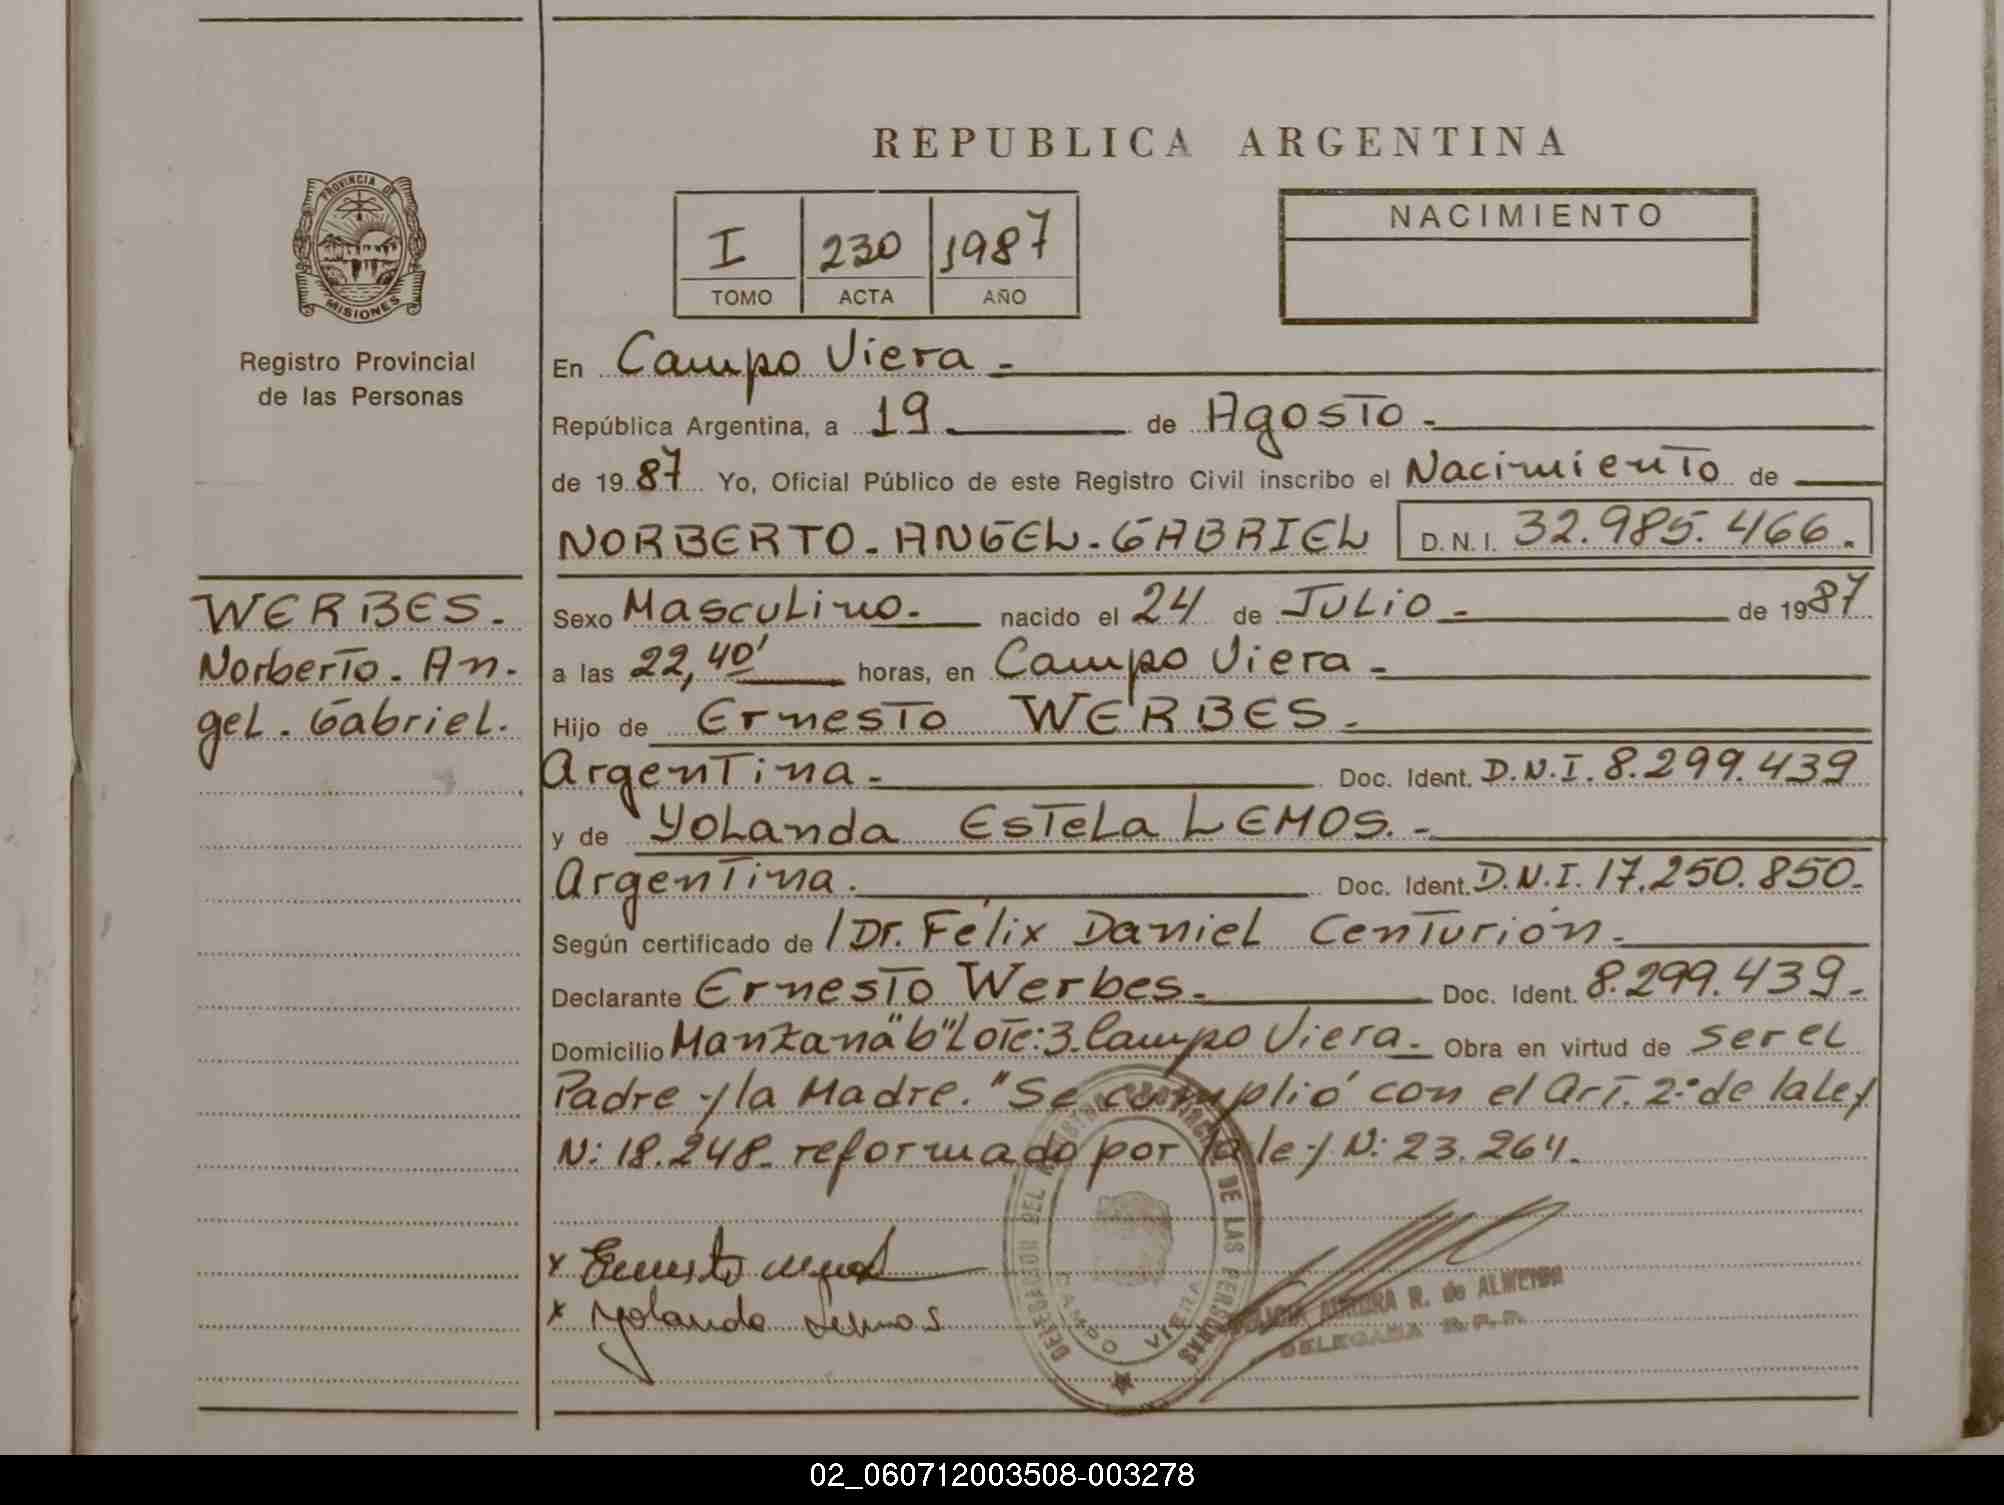 REPUBLICA ARGENTINA
PROVINCIA DE
MISIONES
Registro Provincial
de las Personas
I 230 1987
TOMO ACTA AÑO
NACIMIENTO
En Campo Viera -
República Argentina, a 19 de Agosto -
de 1987 Yo, Oficial Público de este Registro Civil inscribo el Nacimiento de
NORBERTO - ANGEL - GABRIEL D.N.I. 32.985.466.
WERBES.
Norberto - An-
gel - Gabriel.
Sexo Masculino. nacido el 24 de Julio - de 1987
a las 22,40' horas, en Campo Viera -
Hijo de Ernesto WERBES -
Argentina - Doc. Ident. D.N.I. 8.299.439
y de Yolanda Estela LEMOS. -
Argentina. Doc. Ident. D.N.I. 17.250.850.
Según certificado de / Dr. Félix Daniel Centurión.
Declarante Ernesto Werbes - Doc. Ident. 8.299.439 -
Domicilio Manzana "b" Lote: 3. Campo Viera. Obra en virtud de ser el
Padre y la Madre. "Se cumplió con el Art. 2º de la ley
N: 18.248 - reformado por la ley N: 23.264.
x Ernesto
x Yolanda Lemos
DELEGACION DEL REGISTRO PROVINCIAL DE LAS PERSONAS
CAMPO VIERA
AURORA R. de ALMEIDA
DELEGADA R.P.P.
02_060712003508-003278